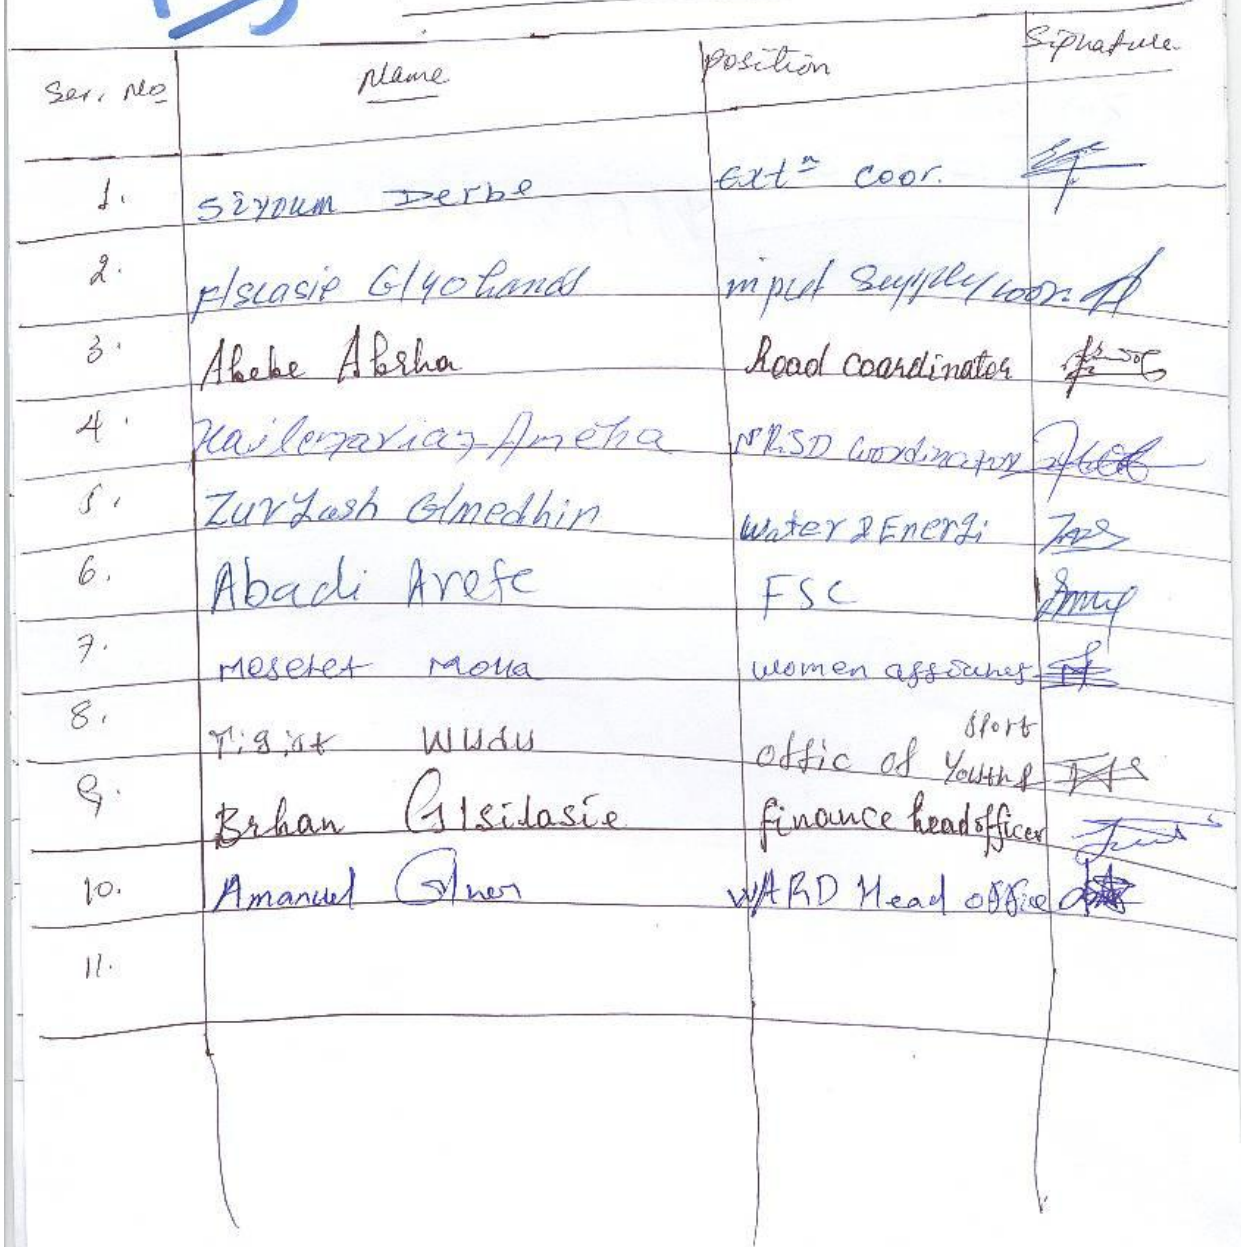 Ser. No Name Position Signature
1. Siyoum Derbe Extn coor.
2. G/yohanas input Supply coor.
3. Abebe Abrha Road coardinator
4. Hailemariam Ameha NRSD Coordinator
5. Zuryash G/medhin Water & Energi
6. Abadi Arefe FSC
7. Meseret Molla women affsires
8. Tigist Wudu offic of Youth & sport
9. Brhan G/silasie finance head officer
10. Amanuel WARD Head office
11.